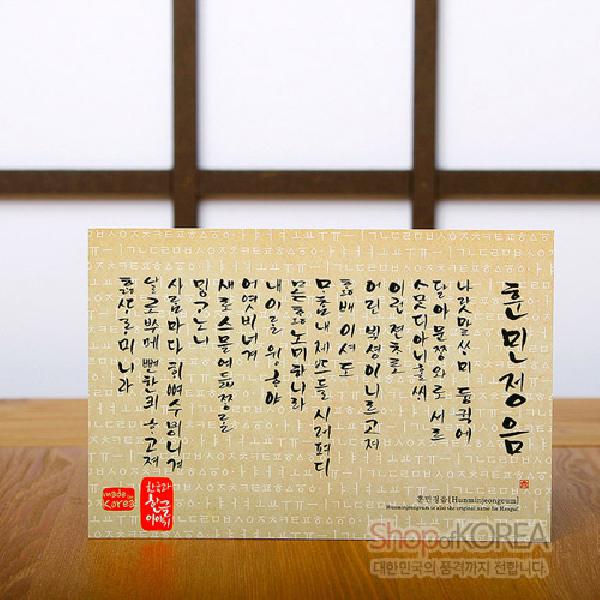 훈민정음
나랏말ᄊᆞ미 듕귁에
달아문ᄍᆞᆼ와로 서르
ᄉᆞᄆᆞᆺ디아니ᄒᆞᆯᄊᆡ
이런 젼ᄎᆞ로
어린 ᄇᆡᆨ셩이니르고져
홇배이셔도
ᄆᆞᄎᆞᆷ내제ᄠᅳ들 시러펴디
몯ᄒᆞᇙ노미하니라
내이ᄅᆞᆯ 윙ᄒᆞ야
어엿비너겨
새로스믈여듧ᄍᆞᆼᄅᆞᆯ
ᄆᆡᇰᄀᆞ노니
사ᄅᆞᆷ마다 ᄒᆡᅇᅧ수ᄫᅵ니겨
날로ᄡᅮ메 뼌한킈ᄒᆞ고져
ᄒᆞᇙᄯᆞᄅᆞ미니라
made in Korea
한국과
한글
이야기
훈민정음[Hunminjeongeum]
Hunminjeongeum is also the original name for Hangul
Shop of KOREA
대한민국의 품격까지 전합니다.